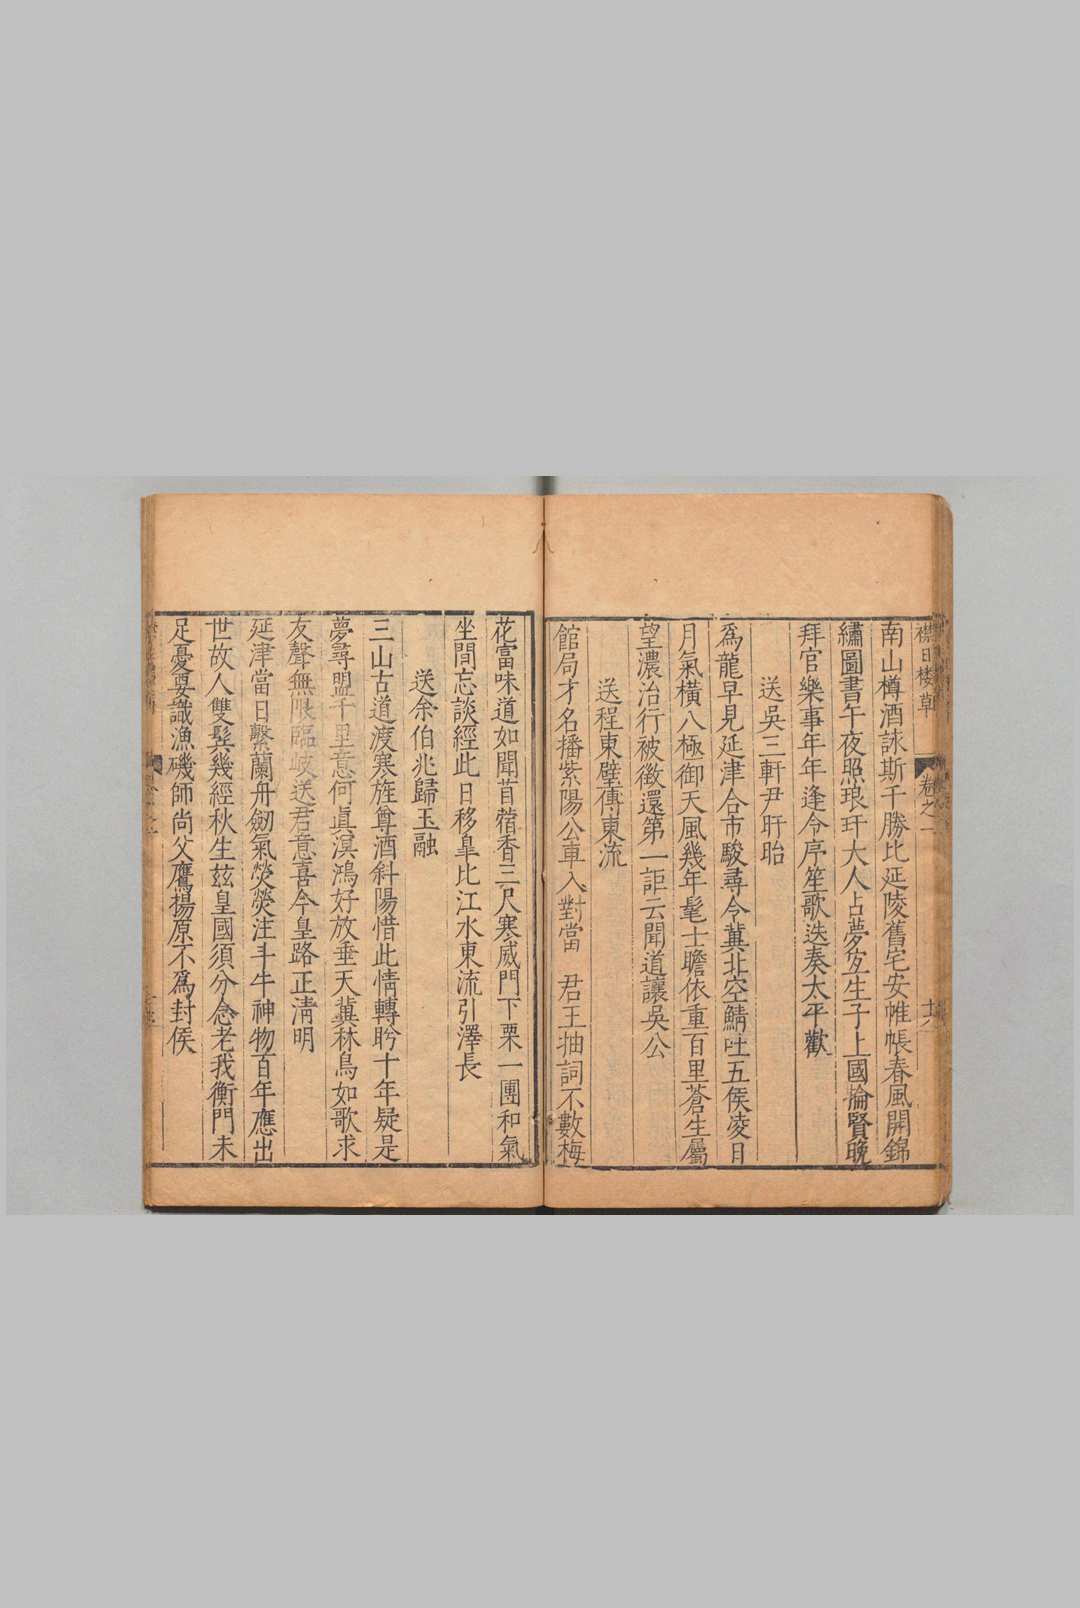 襟日樓草
卷之一
南山樽酒詠斯干勝比延陵舊宅安帷帳春風開錦
繡圖書午夜照琅玕大人占夢宜生子上國掄賢晚
拜官樂事年年逢令序笙歌迭奏太平歡
送吳三軒尹盱眙
爲龍早見延津合市駿尋令冀北空鯖吐五侯凌日
月氣橫八極御天風幾年髦士瞻依重百里蒼生屬
望濃治行被徵還第一詎云聞道讓吳公
送程東壁傳東流
館局才名播紫陽公車入對當 君王抽詞不數梅
花富味道如聞苜蓿香三尺寒威門下栗一團和氣
坐間忘談經此日移臯比江水東流引澤長
送余伯兆歸玉融
三山古道渡寒旌尊酒斜陽惜此情轉盻十年疑是
夢尋盟千里意何真溟鴻好放垂天冀林鳥如歌求
友聲無限臨岐送君意喜今皇路正清明
延津當日繫蘭舟劒氣熒熒注斗牛神物百年應出
世故人雙髩幾經秋生玆皇國須分念老我衡門未
足憂要識漁磯師尚父鷹揚原不爲封侯